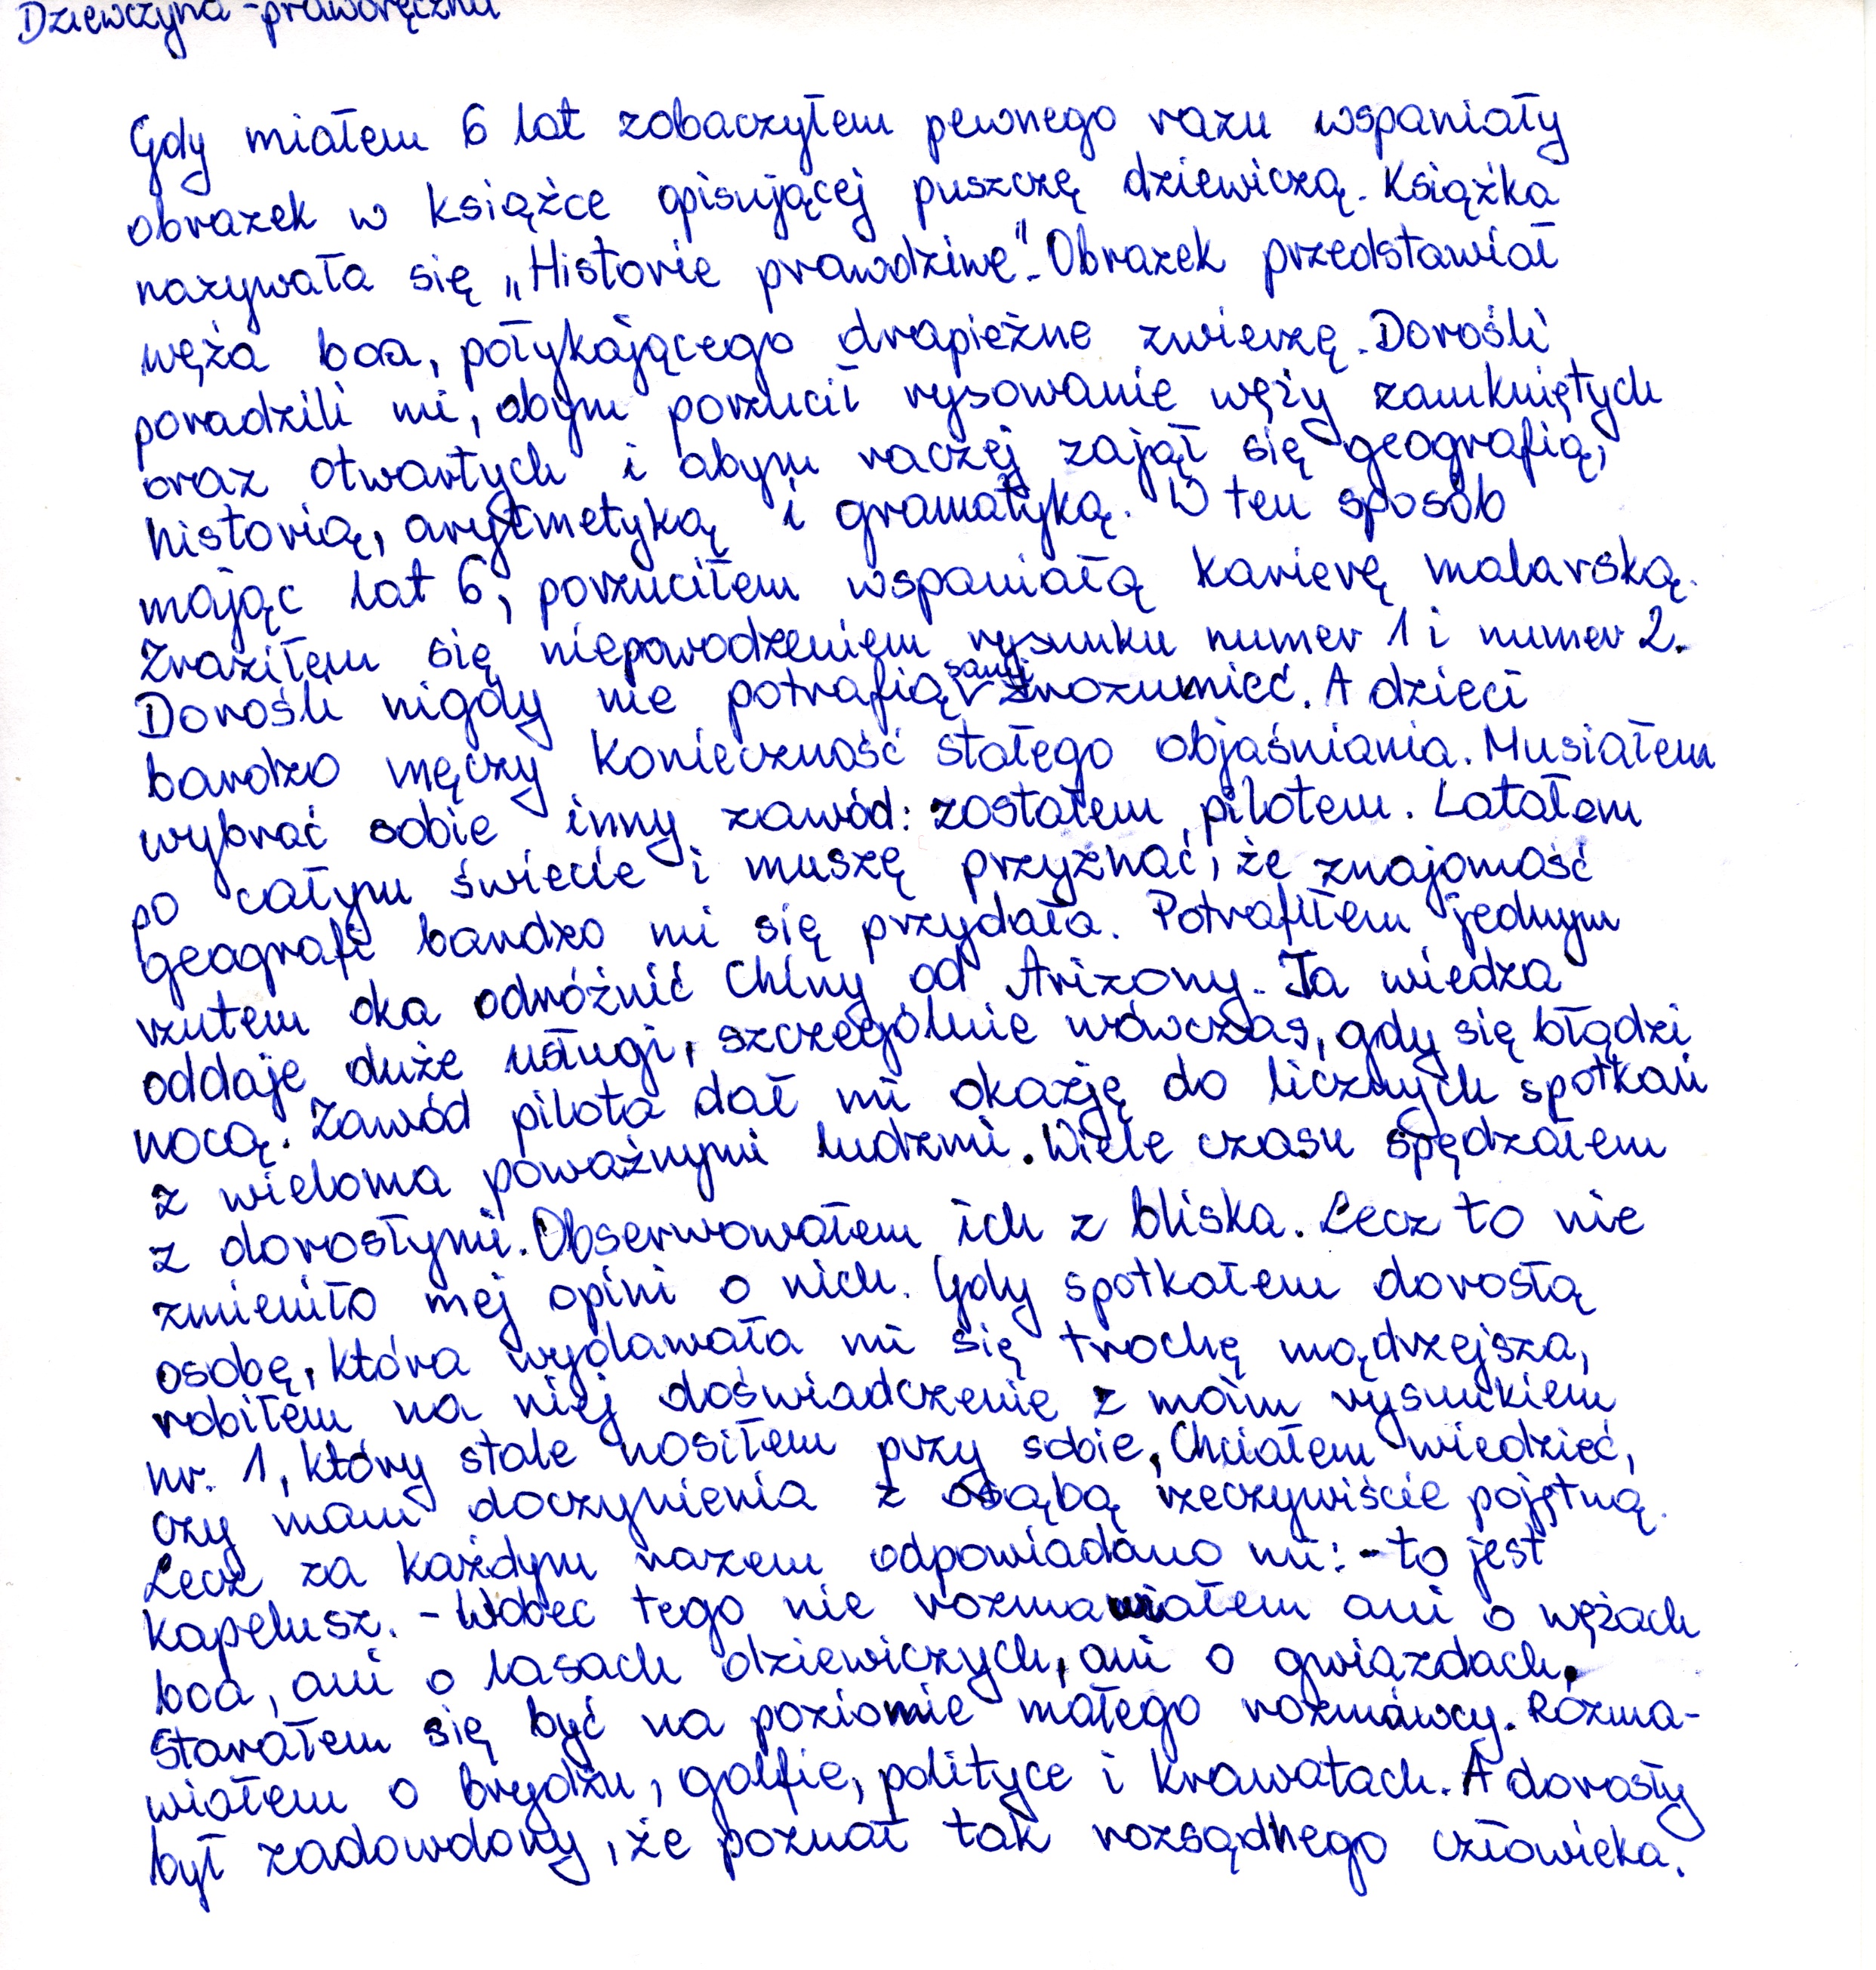 Dziewczyna - praworęczna
Gdy miałem 6 lat zobaczyłem pewnego razu wspaniały
obrazek w książce opisującej puszczę dziewiczą. Książka
nazywała się „Historie prawdziwe". Obrazek przedstawiał
węża boa, połykającego drapieżne zwierzę. Dorośli
poradzili mi, abym porzucił rysowanie węży zamkniętych
oraz otwartych i abym raczej zajął się geografią,
historią, arytmetyką i gramatyką. W ten sposób
mając lat 6, porzuciłem wspaniałą karierę malarską.
Zraziłem się niepowodzeniem rysunku numer 1 i numer 2.
Dorośli nigdy nie potrafią sami zrozumieć. A dzieci
bardzo męczy konieczność stałego objaśniania. Musiałem
wybrać sobie inny zawód: zostałem pilotem. Latałem
po całym świecie i muszę przyznać, że znajomość
geografi bardzo mi się przydała. Potrafiłem jednym
rzutem oka odróżnić Chiny od Arizony. Ta wiedza
oddaje duże usługi, szczególnie wówczas, gdy się błądzi
nocą. Zawód pilota dał mi okazję do licznych spotkań
z wieloma poważnymi ludzmi. Wiele czasu spędzałem
z dorosłymi. Obserwowałem ich z bliska. Lecz to nie
zmieniło mej opini o nich. Gdy spotkałem dorosłą
osobę, która wydawała mi się trochę mądrzejsza,
robiłem na niej doświadczenie z moim rysunkiem
nr. 1, który stale nosiłem przy sobie, Chciałem wiedzieć,
czy mam doczynienia z osąbą rzeczywiście pojętną.
Lecz za każdym razem odpowiadano mi: - to jest
kapelusz. - Wobec tego nie rozmawiałem ani o wężach
boa, ani o lasach dziewiczych, ani o gwiazdach.
Starałem się być na poziomie małego rozmówcy. Rozma-
wiałem o brydżu, golfie, polityce i krawatach. A dorosły
był zadowolony, że poznał tak rozsądnego człowieka.